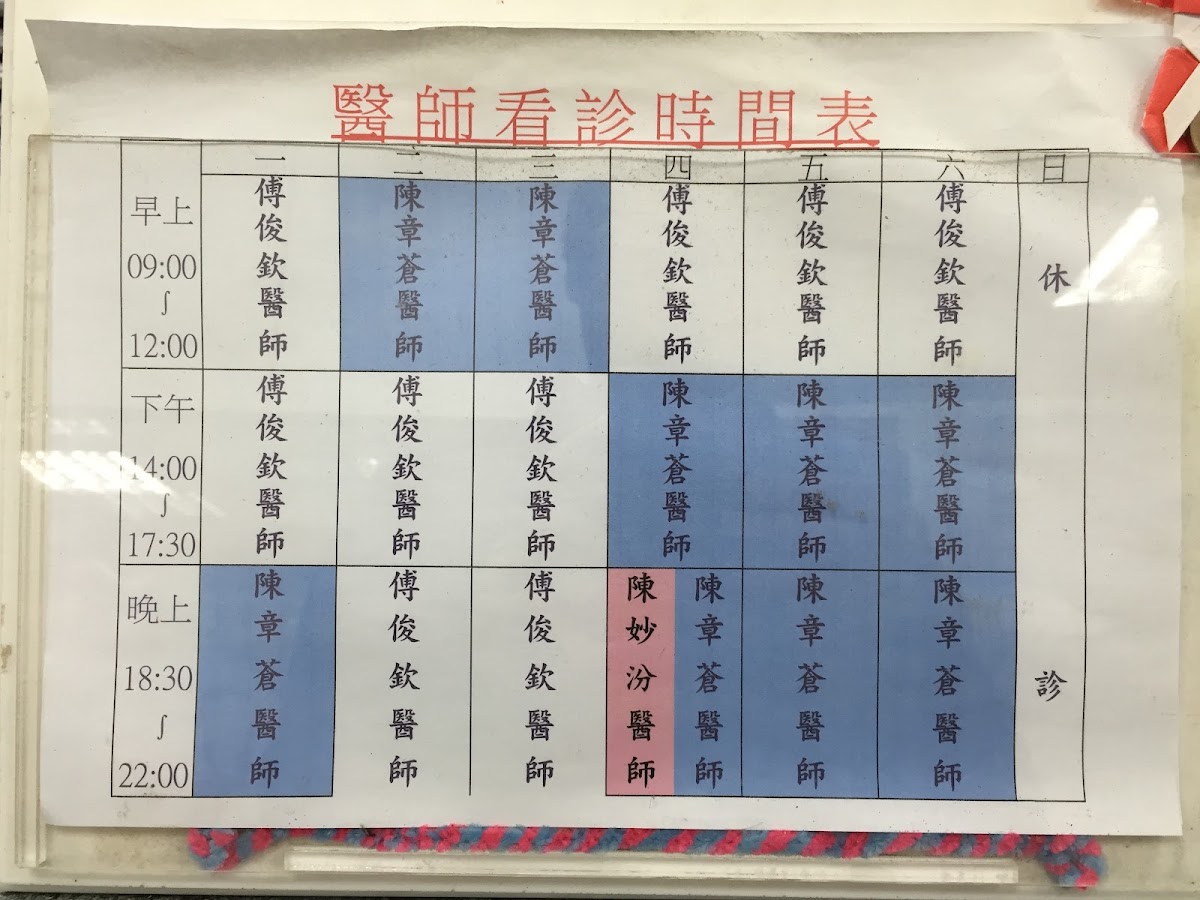 醫師看診時間表
一 二 三 四 五 六 日
早上 09:00 ∫ 12:00 傅俊欽醫師 陳章蒼醫師 陳章蒼醫師 傅俊欽醫師 傅俊欽醫師 傅俊欽醫師 休
下午 14:00 ∫ 17:30 傅俊欽醫師 傅俊欽醫師 傅俊欽醫師 陳章蒼醫師 陳章蒼醫師 陳章蒼醫師
晚上 18:30 ∫ 22:00 陳章蒼醫師 傅俊欽醫師 傅俊欽醫師 陳妙汾醫師 陳章蒼醫師 陳章蒼醫師 陳章蒼醫師 診